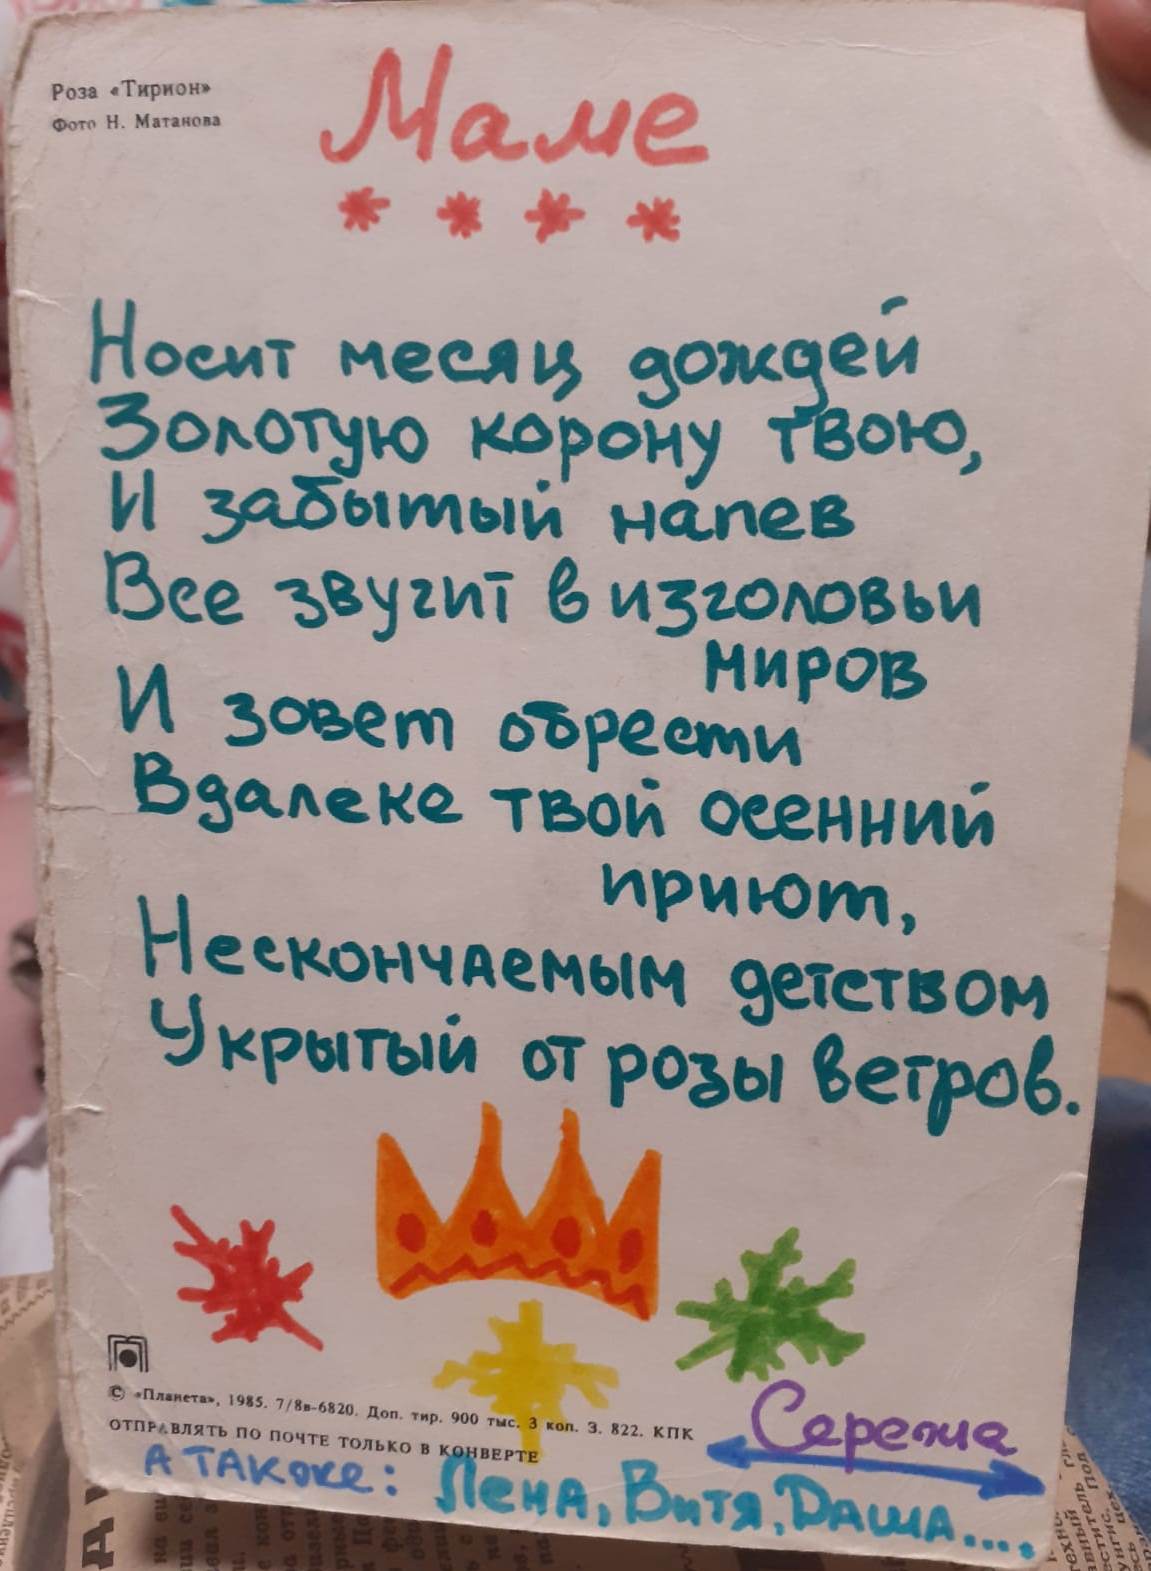 Роза «Тирион»
Фото Н. Матанова
Маме
* * * *
Носит месяц дождей
Золотую корону твою,
И забытый напев
Все звучит в изголовьи
миров
И зовет обрести
Вдалеке твой осенний
приют,
Нескончаемым детством
Укрытый от розы ветров.
© «Планета», 1985. 7/8в-6820. Доп. тир. 900 тыс. 3 коп. З. 822. КПК
ОТПРАВЛЯТЬ ПО ПОЧТЕ ТОЛЬКО В КОНВЕРТЕ
Сережа
А ТАКЖЕ: Лена, Витя, Даша....